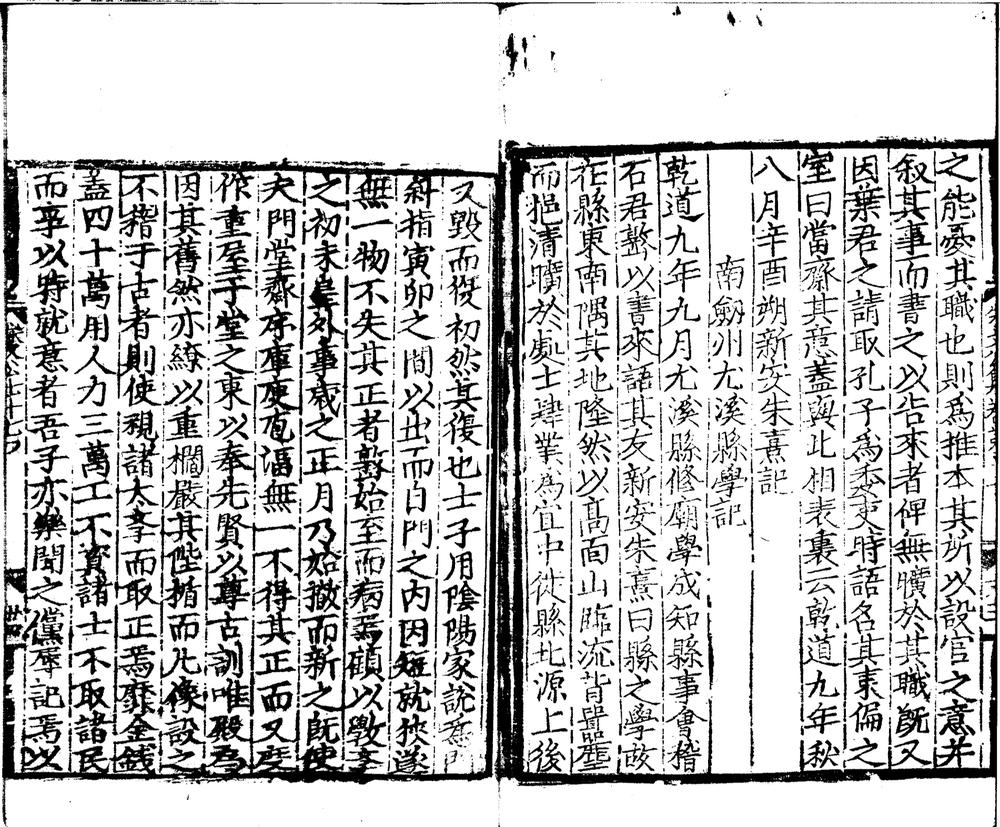 之能憂其職也則為推本其所以設官之意并
叙其事而書之以告來者俾無曠於其職既又
因葉君之請取孔子為委吏時語名其東偏之
室曰當齋其意蓋與此相表裏云乾道九年秋
八月辛酉朔新安朱熹記
南劒州尤溪縣學記
乾道九年九月尤溪縣修廟學成知縣事會稽
石君䃤以書來語其友新安朱熹曰縣之學故
在縣東南隅其地隆然以高面山臨流背囂塵
而挹清曠於處士肄業為宜中徙縣北源上後
又毀而復初然其復也士子用陰陽家說為門
斜指寅卯之間以出而自門之內因短就狹遂
無一物不失其正者䃤始至而病焉顧以敎事
之初未皇外事歲之正月乃始撤而新之既使
夫門堂齋序庫庾庖湢無一不得其正而又度
作重屋于堂之東以奉先賢以尊古訓唯殿為
因其舊然亦繚以重櫩嚴其陛楯而凡像設之
不稽于古者則使視諸太學而取正焉靡金錢
蓋四十萬用人力三萬工不資諸士不取諸民
而事以時就意者吾子亦樂聞之儻辱記焉以